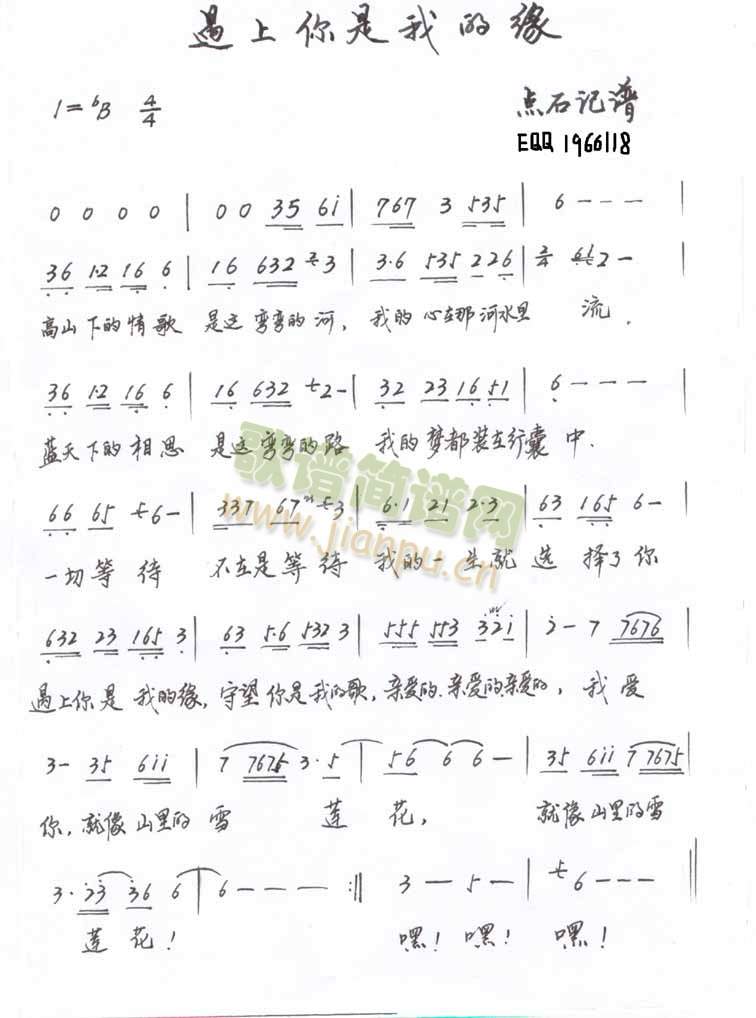 遇上你是我的缘
1=ᵇB 4/4 点石记谱
EQQ 1966118
0 0 0 0 | 0 0 35 6i | 767 3 535 | 6 - - - |
36 1·2 16 6 | 16 632 3 | 3·6 535 226 | 2/4 2 - |
高山下的情歌 是这弯弯的河, 我的心在那河水里 流.
36 1·2 16 6 | 16 632 2 - | 32 23 16 51 | 6 - - - |
蓝天下的相思 是这弯弯的路 我的梦都装在行囊中.
歌谱简谱网
www.jianpu.cn
66 65 6 - | 337 67 3 | 6·1 21 2·3 | 63 165 6 - |
一切等待 不在是等待 我的一生就选择了你
632 23 165 3 | 63 5·6 532 3 | 555 553 32i | 2 - 7 7676 |
遇上你是我的缘, 守望你是我的歌, 亲爱的.亲爱的.亲爱的, 我爱
3 - 35 6ii | 7 7675 3·5 | 56 6 6 - | 35 6ii 7 7675 |
你, 就像山里的雪莲花, 就像山里的雪
3· 23 36 6 | 6 - - - :|| 3 - 5 - | 6 - - - ||
莲花! 嘿! 嘿! 嘿!